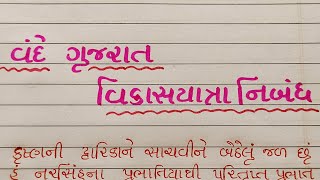 વંદે ગુજરાત
વિકાસયાત્રા નિબંધ
કૃષ્ણની દ્વારિકાને સાચવીને બેઠેલું જળ છું
હું નરસિંહના પ્રભાતિયાથી પરિતૃપ્ત પ્રભાત